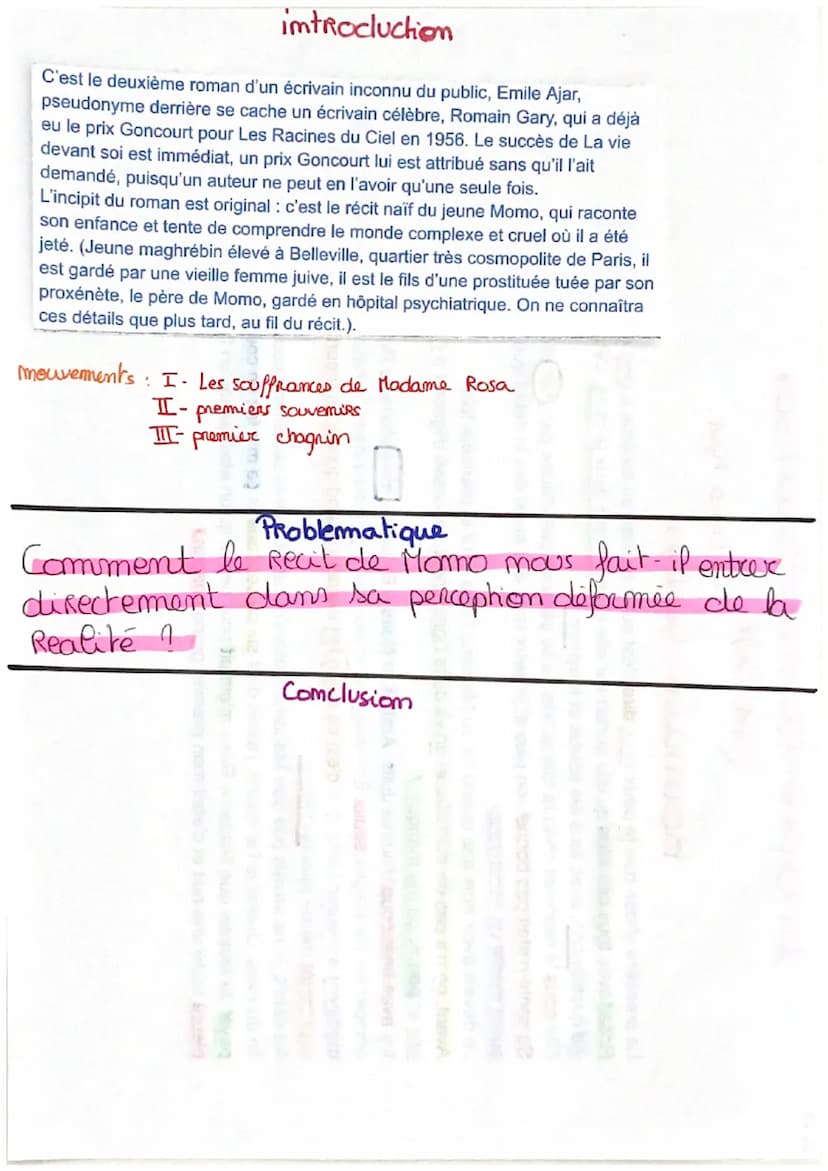 introduction
C'est le deuxième roman d'un écrivain inconnu du public, Emile Ajar,
pseudonyme derrière se cache un écrivain célèbre, Romain Gary, qui a déjà
eu le prix Goncourt pour Les Racines du Ciel en 1956. Le succès de La vie
devant soi est immédiat, un prix Goncourt lui est attribué sans qu'il l'ait
demandé, puisqu'un auteur ne peut en l'avoir qu'une seule fois.
L'incipit du roman est original : c'est le récit naïf du jeune Momo, qui raconte
son enfance et tente de comprendre le monde complexe et cruel où il a été
jeté. (Jeune maghrébin élevé à Belleville, quartier très cosmopolite de Paris, il
est gardé par une vieille femme juive, il est le fils d'une prostituée tuée par son
proxénète, le père de Momo, gardé en hôpital psychiatrique. On ne connaîtra
ces détails que plus tard, au fil du récit.).
mouvements : I- Les souffrances de Madame Rosa
II- premiers souvenirs
III- premier chagrin
Problematique
Comment le Recit de Momo nous fait-il entrer
directement dans sa perception déformée de la
Realité ?
Conclusion